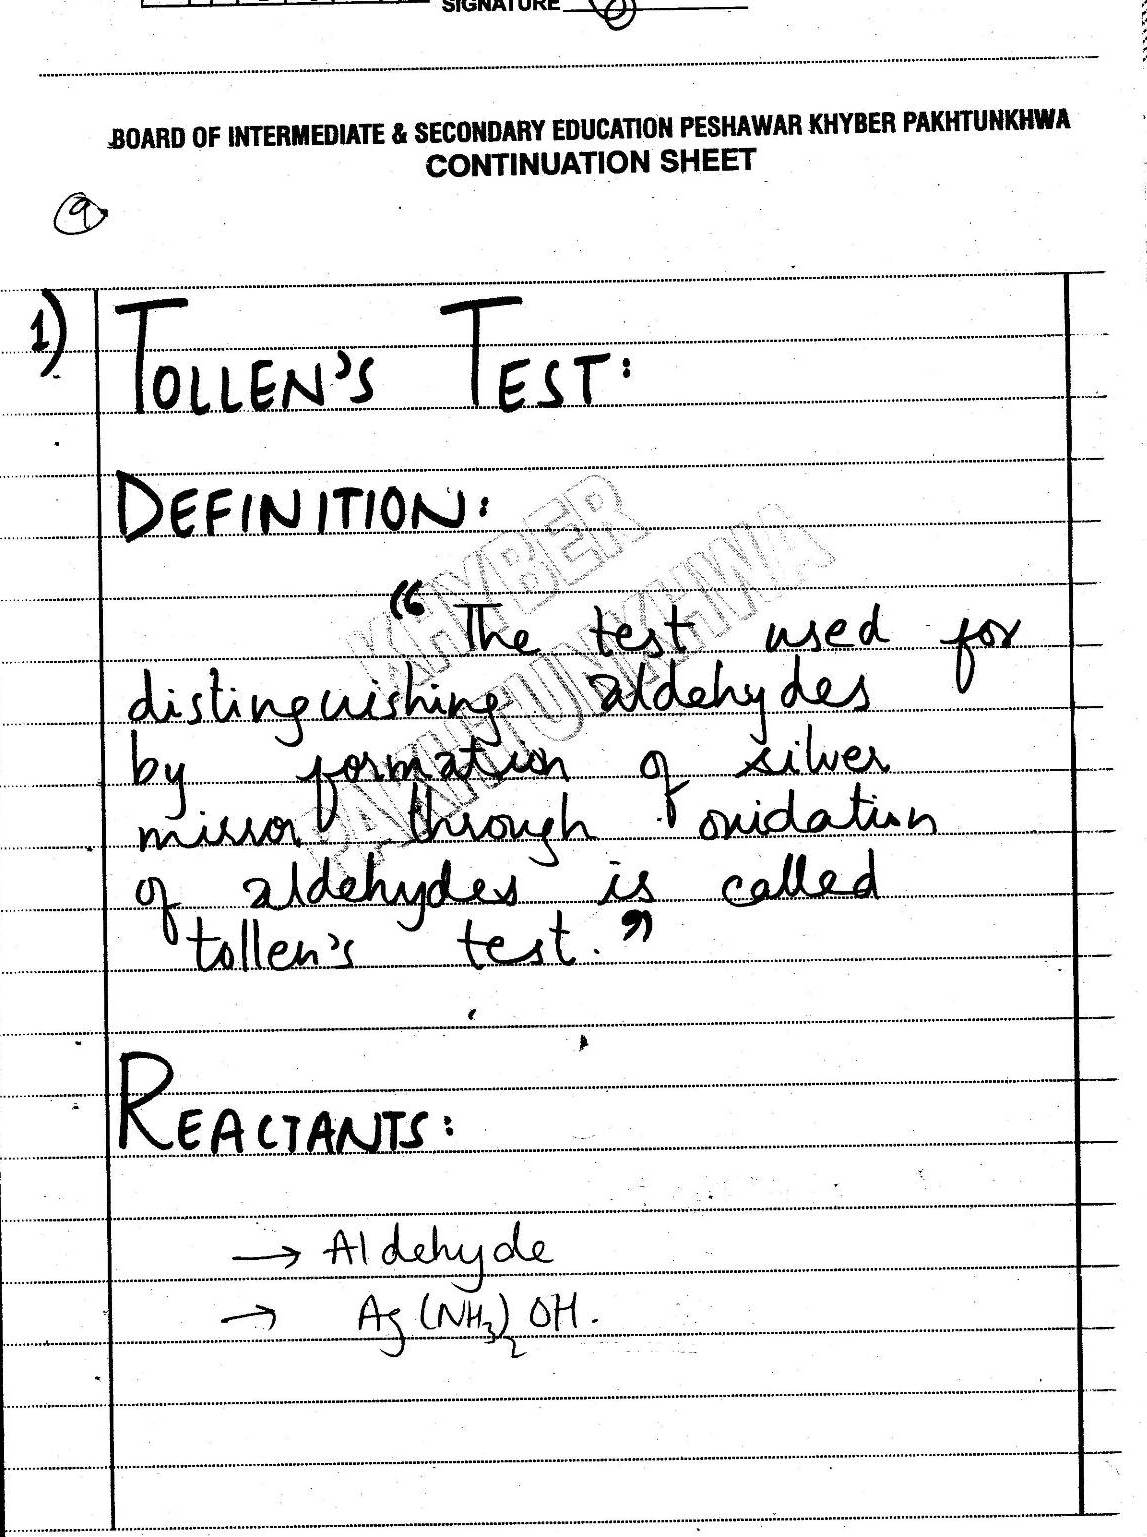 SIGNATURE
BOARD OF INTERMEDIATE & SECONDARY EDUCATION PESHAWAR KHYBER PAKHTUNKHWA
CONTINUATION SHEET
9.
1) TOLLEN'S TEST:
DEFINITION:
KHYBER
PAKHTUNKHWA
“ The test used for
distinguishing aldehydes
by formation of silver
mirror through oxidation
of aldehydes is called
tollen's test. ”
REACTANTS:
→ Aldehyde
→ Ag(NH₃)₂ OH.